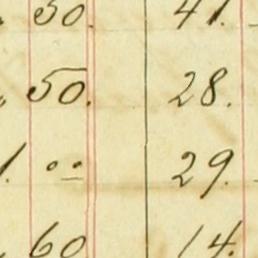 50. 41.
" 50. 28.
1. 00 29.
60 14.